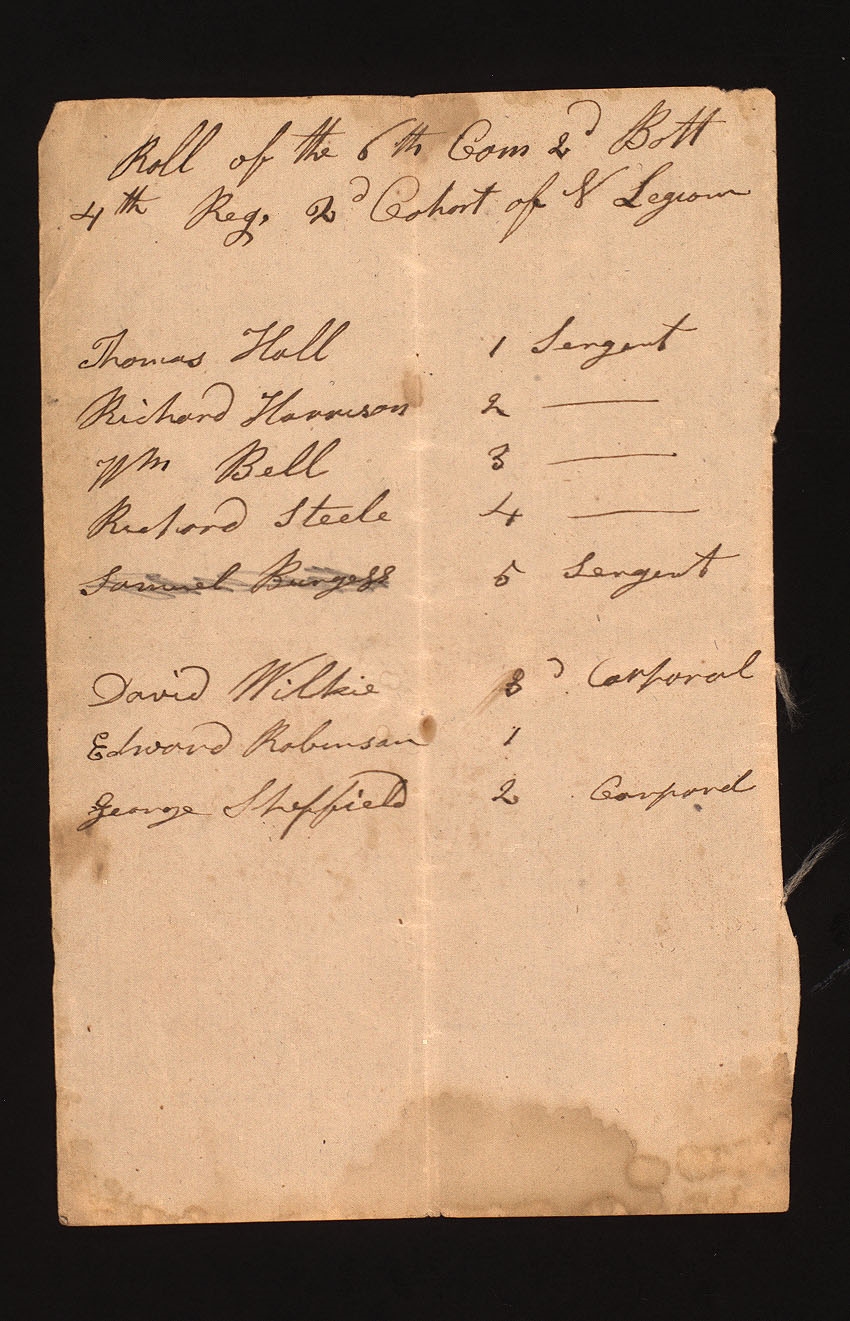 Roll of the 6th Com 2d Batt
4th Reg, 2d Cohort of N Legion
Thomas Hall 1 Sergent
Richard Harrison 2 —
Wm Bell 3 —
Richard Steele 4 —
Samuel Burgess 5 Sergent
David Wilkie 3d Corporal
Edward Robinson 1
George Sheffield 2 Corporal